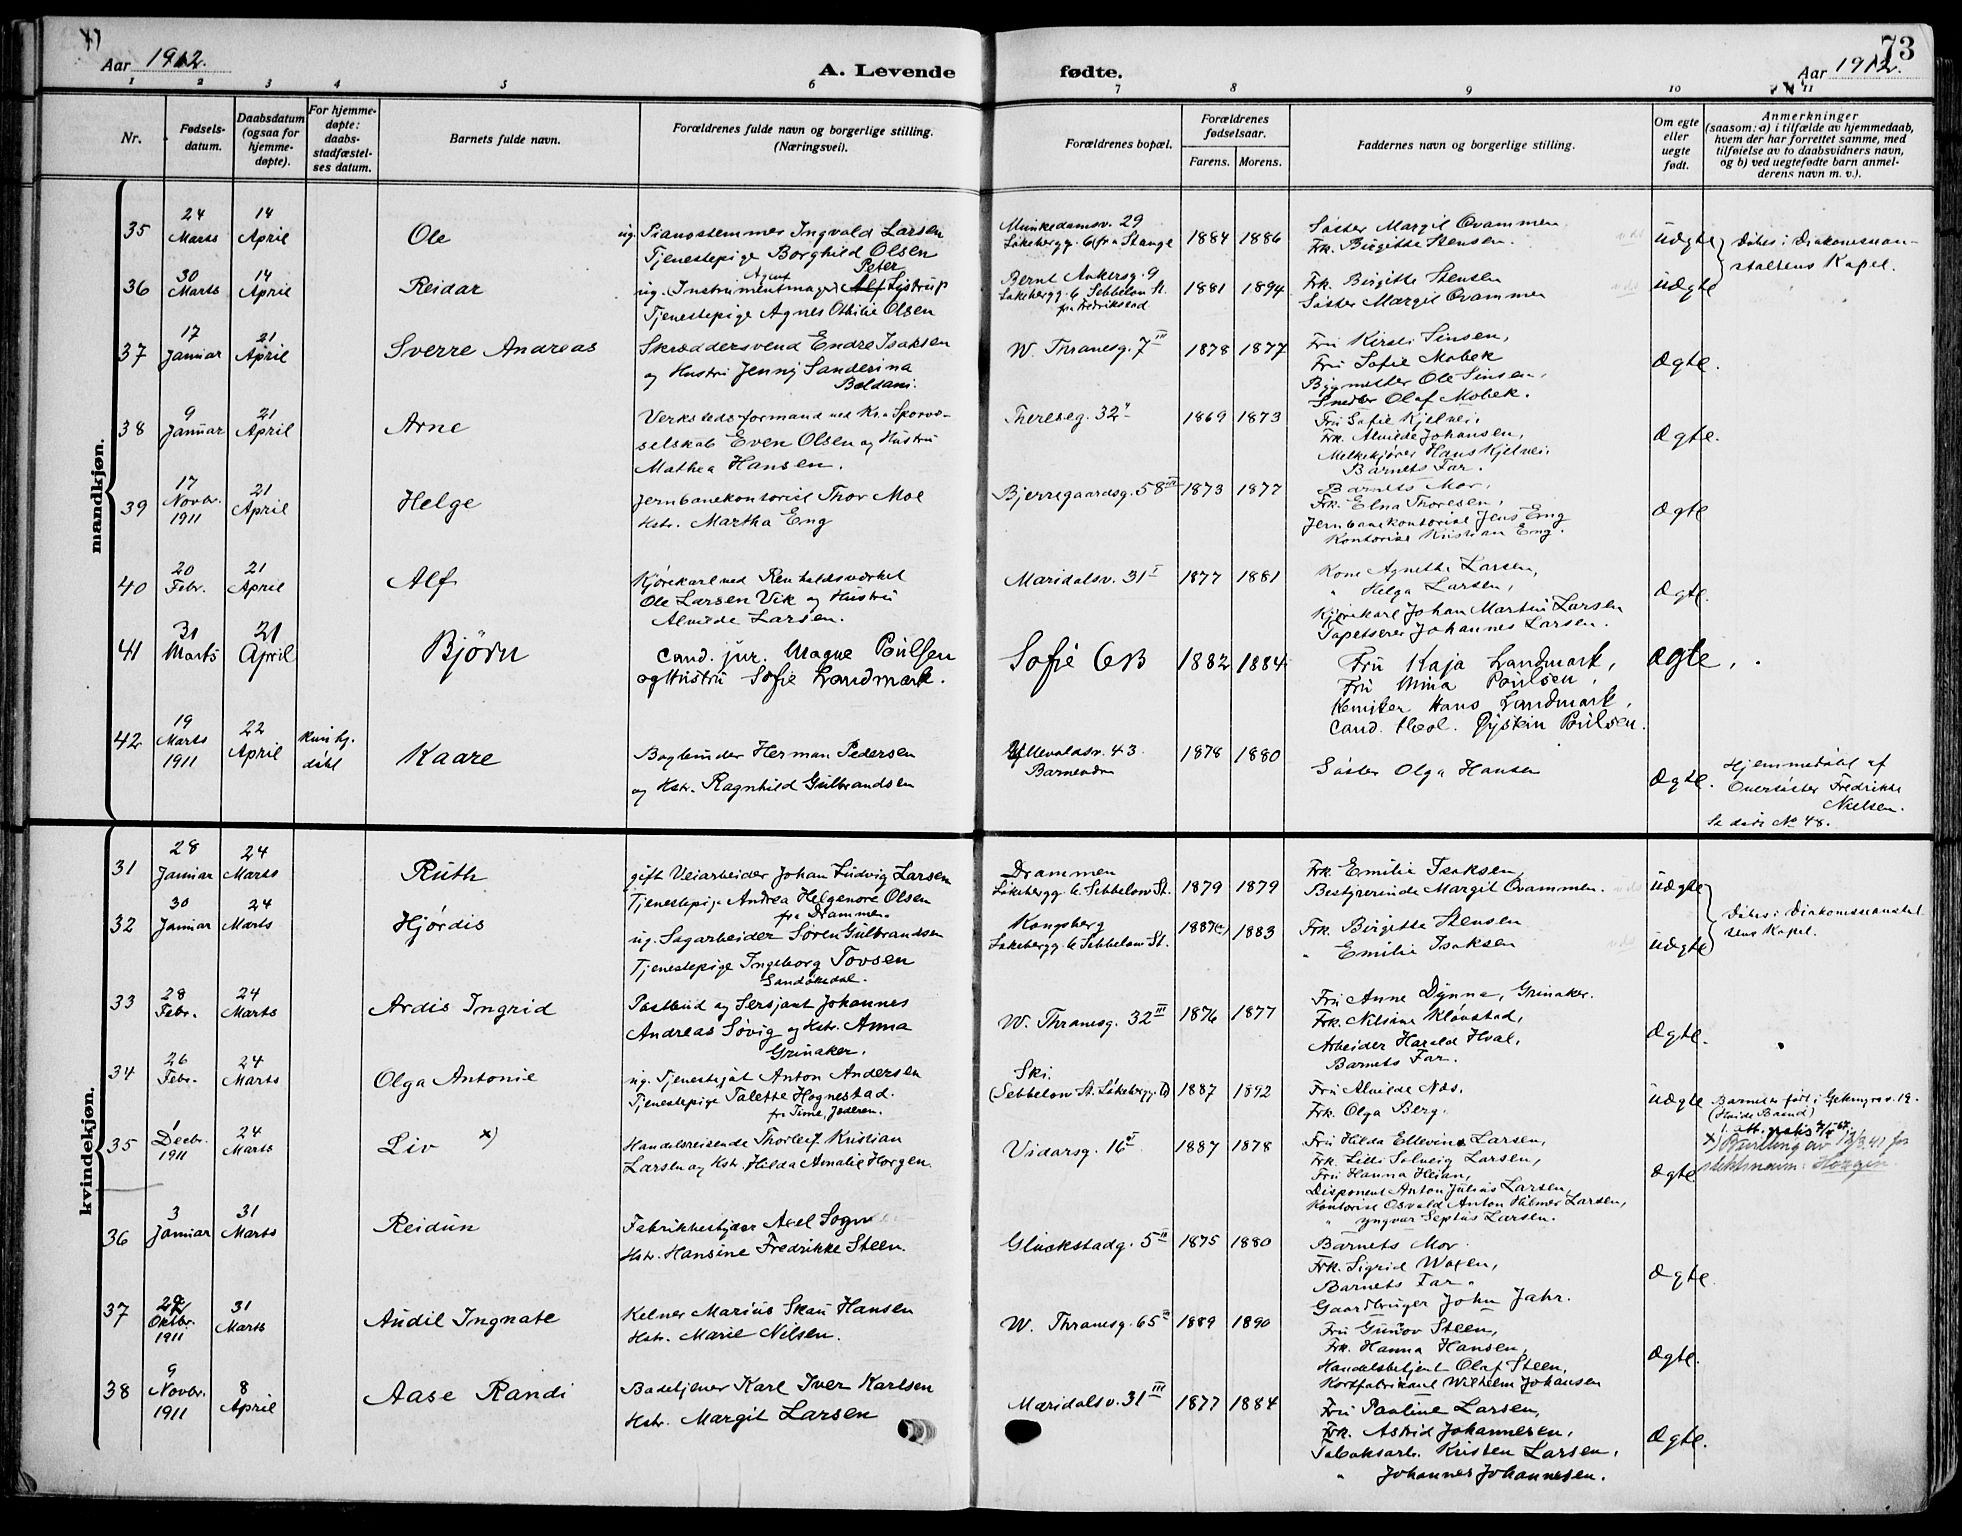 Aar 1912.
A. Levende
fødte.
Aar 1912.
73
1 2 3 4 5 6 7 8 9 10 11
Nr.
Fødsels-
datum.
Daabsdatum
(ogsaa for
hjemme-
døpte).
For hjemme-
døpte:
daabs-
stadfæstel-
ses datum.
Barnets fulde navn.
Forældrenes fulde navn og borgerlige stilling.
(Næringsvei).
Forældrenes bopæl.
Forældrenes
fødselsaar.
Farens. Morens.
Faddernes navn og borgerlige stilling.
Om egte
eller
uegte
født.
Anmerkninger
(saasom: a) i tilfælde av hjemmedaab,
hvem der har forrettet samme, med
tilføielse av to daabsvidners navn,
og b) ved uegtefødte barn anmel-
derens navn m. v.).
mandkjøn.
35
24 Marts
14 April
Ole
ug. Pianostemmer Ingvald Larsen
Tjenestepige Borghild Olsen
Munkedamsv. 29
Løkebergg. 6 fra Stange
1884 1886
Søster Margit Ovammen
Frk. Birgitte Stensen.
uægte
Døbes i Diakonissean-
staltens Kapel.
36
30 Marts
14 April
Reidar
Agent Peter
ug. (Instrumentmager Alf Lystrup
Tjenestepige Agnes Othilie Olsen
Bernt Ankersg. 9
Løkebergg. 6 Sebbelow St.
fra Fredrikstad
1881 1894
Frk. Birgitte Stensen
Søster Margit Ovammen
uægte
37
17 Januar
21 April
Sverre Andreas
Skræddersvend Endre Isaksen
og Hustru Jenny Sanderina
Boldani.
W. Thranesg. 7 III
1878 1877
Fru Kirsti Sinsen,
Fru Sofie Mobek
Bygmester Ole Sinsen,
Snedker Olaf Mobek.
Ægte.
38
9 Januar
21 April
Arne
Verkstedsformand ved Kr.a Sporvs-
selskab Even Olsen og Hustru
Mathea Hansen.
Thereseg. 32 II
1869 1873
Fru Sofie Kjelvei,
Frk. Alvilde Johansen,
Melkekjører Hans Kjelvei.
Barnets Far.
Ægte.
39
17 Novbr. 1911
21 April
Helge
Jernbanekontorist Thor Moe
Hstr. Martha Eng
Bjerregaardsg. 58 III
1873 1877
Barnets Mor,
Frk. Elna Thoresen,
Jernbanekontorist Jens Eng
Kontorist Kristian Eng.
Ægte
40
20 Febr.
21 April
Alf
Kjørekarl ved Renholdsverket
Ole Larsen Vik og Hustru
Alvilde Larsen.
Maridalsv. 31 I
1877 1881
Kone Agnette Larsen,
" Helga Larsen,
Kjørekarl Johan Martin Larsen
Tapetserer Johannes Larsen.
Ægte.
41
31 Marts
21 April
Bjørn
Cand. jur. Magne Poulsen
og Hustru Sofie Landmark.
Sofie 6B
1882 1884
Fru Kaja Landmark,
Fru Mina Poulsen,
Kemiker Hans Landmark,
Cand. theol. Øystein Poulsen.
Ægte.
42
19 Marts 1911
22 April
Kun hj.
døbt
Kaare
Bogbinder Herman Pedersen
og Hstr. Ragnhild Gulbrandsen
Ullevoldsv. 43.
1878 1880
Søster Olga Hansen
Ægte.
Hjemmedøbt af
Oversøster Fredrikke
Nielsen.
Se døde No 48.
kvindekjøn.
31
28 Januar
24 Marts
Ruth
gift Veiarbeider Johan Ludvig Larsen
Tjenestepige Andrea Helgenore Olsen
fra Drammen
Drammen
Løkebergg. 6. Sebbelow St.
1879 1879
Frk. Emilie Isaksen,
Bestyrerinde Margit Ovammen.
uægte
Døbes i Diakonisseanstal
tens Kapel.
32
30 Januar
24 Marts
Hjørdis
ug. Sagarbeider Søren Gulbrandsen
Tjenestepige Ingeborg Tovsen
Sandøkedal.
Kongsberg
Løkebergg. 6 Sebbelow St.
1883
Frk. Birgitte Stensen
" Emilie Isaksen
uægte
33
28 Febr.
24 Marts
Ardis Ingrid
Postbud og Sersjant Johannes
Andreas Søvig og Hstr. Anna
Grinaker.
W. Thranesg. 32 III
1876 1877
Fru Anne Dynna, Grinaker.
Frk. Nilsine Kløvstad,
Arbeider Harald Hval,
Barnets Far.
Ægte.
34
26 Febr.
24 Marts
Olga Antonie
ug. Tjenestegut Anton Andersen
Tjenestepige Talette Hognestad.
fr Time, Jæderen.
Ski.
(Sebbelow St. Løkebergg. 6)
1887 1892
Fru Alvilde Næs.
Frk. Olga Berg.
uægte
35
1 Decbr. 1911
24 Marts
Liv x)
Handelsreisende Thorleif Kristian
Larsen og Hstr. Hilda Amalie Horgen.
Vidarsg. 16 II
1887 1878
Fru Hilda Ellevine Larsen,
Frk. Lilli Solveig Larsen,
Fru Hanna Heian,
Disponent Anton Julius Larsen,
Kontorist Osvald Anton Hilmar Larsen,
" Yngvar Septus Larsen.
Ægte
x) Bevilling av 12/3.41 for
slektsnavn: Horgen.
36
3 Januar
31 Marts
Reidun
Fabrikbestyrer Axel Sogn
Hstr. Hansine Fredrikke Steen.
Glückstadg. 5 II
1875 1880
Barnets Mor.
Frk. Sigrid Waxen,
Barnets Far.
Gaardbruger John Jahr.
Ægte.
37
Oktbr. 1911
31 Marts
Audil Ingnate
Kelner Marius Skau Hansen
Hstr. Marie Nilsen.
W. Thranesg. 65 III
1889 1890
Fru Gunvor Steen,
Frk. Hanna Hansen,
Handelsbetjent Olaf Steen,
Kortfabrikant Wilhelm Johansen
Ægte.
38
9 Novbr. 1911
8 April
Aase Randi
Badetjener Karl Iver Karlsen
Hstr. Margit Larsen
Maridalsv. 31 III
1877 1884
Fru Pauline Larsen,
Frk. Astrid Johannesen,
Tobaksarb. Kristen Larsen,
" Johannes Johannesen.
Ægte.